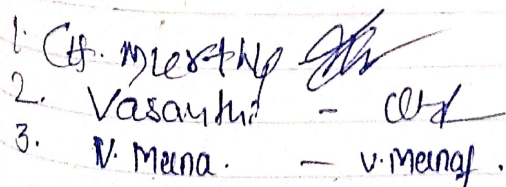 1. Ch. Murthy
2. Vasanthi -
3. V. Meena. - V. Meena.